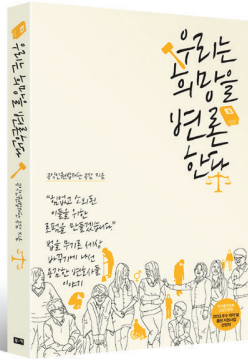 우리는
희망을
변론
한다
공익인권법재단 공감 지음
"힘없고 소외된
이들을 위한
로펌을 만들겠습니다."
법을 무기로 세상
바꾸기에 나선
용감한 변호사들
이야기
우리는 희망을 변론한다
공익인권법재단 공감 지음